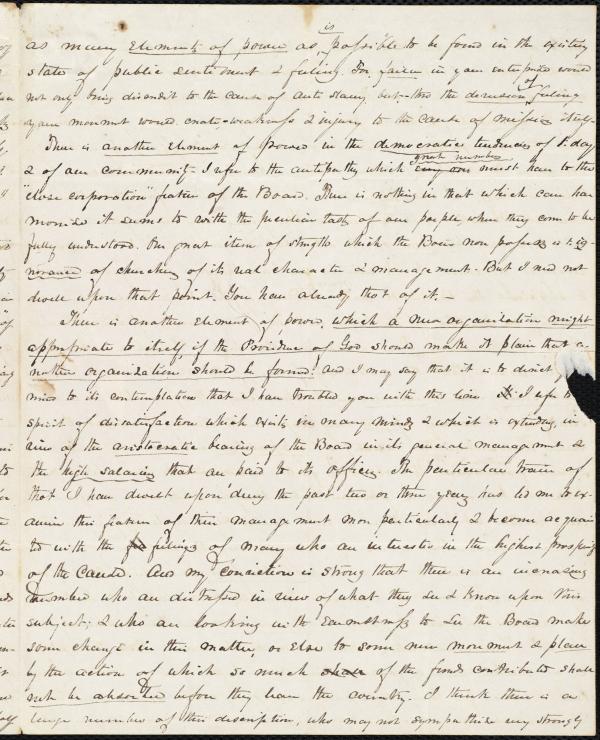 is
as many elements of power as possible to be found in the existing
state of public sentiment & feeling. For failure in your enterprise would
not only bring discredit to the cause of Anti slavery, but thro the derision of failing
your movement would create weakness & injury to the cause of missions itself.
There is another element of power in the democratic tendencies of t. day
& of our community - I refer to the antipathy which great number must have to the
"close corporation" feature of the Board. There is nothing in that which can har
monize it seems to with the peculiar taste of our people, when they come to be
fully understood. One great item of strength which the Board now possess is t. ig-
norance of churches of its real character & management. But I need not
dwell upon that point. You have already thot of it. -
There is another element of power, which a new organization might
appropriate to itself if the Providence of God should make it plain that a-
nother organization should be formed: and I may say that it is to direct
mind to its contemplation that I have troubled you with this line. I refer to
spirit of dissatisfaction which exists in many minds & which is extending, in
view of the aristocratic bearing of the Board in its general management &
the high salaries that are paid to its officers. The particular train of
thot I have dwelt upon during the past two or three years has led me to ex-
amine this feature of their management more particularly & become acquain
ted with the feelings of many who are interested in the highest prosperity
of the cause. And my conviction is strong that there is an increasing
number who are distressed in view of what they see & know upon this
subject; & who are looking with earnestness to see the Board make
some change in this matter, or else to some new movement & plan
by the action of which so much of the funds contributed shall
not be absorbed before they leave the country. I think there is a
large number of this description, who may not sympathize very strongly